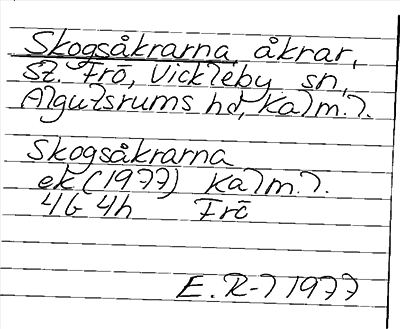 Skogsåkrarna, åkrar,
St. Frö, Vickleby sn,
Algutsrums hd, Kalm. l.
Skogsåkrarna
ek (1977) Kalm. l.
4G 4h Frö
E. R-l 1977